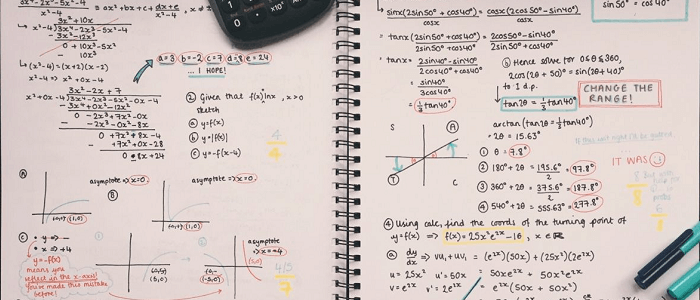 ax² + bx + c + dx + e / x² - 4
x² - 4
3x² + 10x
3x⁴ - 2x³ - 5x² - 4
3x⁴ - 12x²
0 + 10x³ - 5x²
- 10x³
(x² - 4) = (x + 2)(x - 2)
x² - 4 => x² + 0x - 4
a = 3 b = -2 c = 7 d = 8 e = 24
... I HOPE!
3x² - 2x + 7
x² + 0x - 4 3x⁴ - 2x³ - 5x² + 0x - 4
3x⁴ + 0x³ - 12x²
0 - 2x³ + 7x² - 0x
- 2x³ - 0x² - 8x
0 + 7x² + 8x - 4
- +7x² + 0x - 28
0 8x + 24
② Given that f(x) lnx, x > 0
sketch
ⓐ y = f(x)
ⓑ y = |f(x)|
ⓒ y = -f(x - 4)
4/4
Ⓐ
asymptote => x = 0.
(1,0)
Ⓑ
asymptote => x = 0.
(1,0)
Ⓒ
x => +4
y = -f(x)
means you
reflect in the x-axis!
You've made this mistake
before!
(5,0)
asymptote
=> x = +4
(5,0)
4/5
sinx(2sin50° + cos40°) = cosx(2cos50° - sin40°)
cosx cosx
= tanx(2sin50° + cos40°) = 2cos50° - sin40°
2sin50° + cos40° 2sin50° + cos40°
sin50° = cos40°
tanx = 2sin40° - sin40°
2cos40° + cos40°
= sin40°
3cos40°
= ⅓tan40°
ⓑ Hence solve for 0≤θ≤360,
2cos(2θ + 50°) = sin(2θ + 40°)
to 1 d.p.
tan2θ = ⅓tan40°
CHANGE THE
RANGE!
arctan(tan2θ = ⅓tan40°)
= 2θ = 15.63°
S A
T C
① θ = 7.8°
② 180° + 2θ = 195.6° / 2 = 97.8°
③ 360° + 2θ = 375.6° / 2 = 187.8°
④ 540° + 2θ = 555.63° = 277.8°
IT WAS
④ Using calc, find the coords of the turning point of
y = f(x) => f(x) = 25x²e²ˣ - 16, x ∈ ℝ
ⓐ dy/dx => vu₁ + uv₁ = (e²ˣ)(50x) + (25x²)(2e²ˣ)
u = 25x² u' = 50x = 50xe²ˣ + 50x²e²ˣ
v = e²ˣ v' = 2e²ˣ = e²ˣ(50x + 50x²)